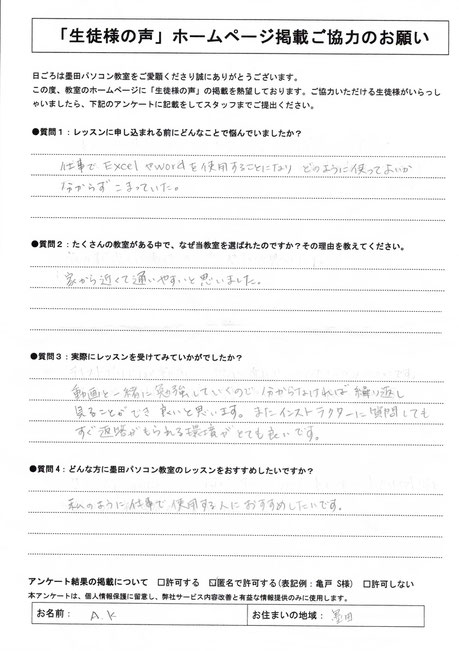 「生徒様の声」ホームページ掲載ご協力のお願い
日ごろは墨田パソコン教室をご愛顧くださり誠にありがとうございます。
この度、教室のホームページに「生徒様の声」の掲載を熱望しております。ご協力いただける生徒様がいらっし
ゃいましたら、下記のアンケートに記載をしてスタッフまでご提出ください。
●質問１：レッスンに申し込まれる前にどんなことで悩んでいましたか？
仕事で ExcelやWordを使用することになり どのように使ってよいか
分からず こまっていた。
●質問２：たくさんの教室がある中で、なぜ当教室を選ばれたのですか？その理由を教えてください。
家から近くて通いやすいと思いました。
●質問３：実際にレッスンを受けてみていかがでしたか？
動画と一緒に勉強していくので 分からなければ 繰り返し
見ることができ 良いと思います。またインストラクターに質問しても
すぐ返答がもらえる環境がとても良いです。
●質問４：どんな方に墨田パソコン教室のレッスンをおすすめしたいですか？
私のように仕事で 使用する人に おすすめしたいです。
アンケート結果の掲載について □許可する ☑匿名で許可する（表記例：亀戸 S様） □許可しない
本アンケートは、個人情報保護に留意し、弊社サービス内容改善と有益な情報提供のみに使用します。
お名前： A.K お住まいの地域： 墨田